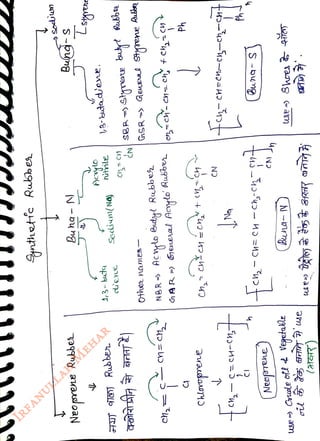 Synthetic Rubber
Neoprene Rubber
नया वाला Rubber
क्लोरोप्रीन से बनता है।
CH₂ = C – CH = CH₂
Cl
Chloroprene
[CH₂ – C = CH – CH₂]n
Cl
Neoprene
use → Crude oil & vegetable
oil के टैंक बनाने में use
(अस्तर)
IRFANULLAH MEHAR
Buna-N
1,3-buta
dience
Sodium(Na)
Acrylo
nitrile
CH₂ = CH
CN
Other names –
NBR ⇒ Acrylo Butyl Rubber
GAR ⇒ General Acrylo Rubber
CH₂ = CH – CH = CH₂ + CH₂ = CH
CN
Na
[CH₂ – CH = CH – CH₂ – CH₂ – CH]n
CN
Buna-N
use → पेट्रोल के टैंक के अस्तर बनाने में
Buna-S
1,3-butadience
Sodium
Styrene
SBR → Styrene butyl Rubber
GSR → General Styrene Rubber
CH₂ = CH – CH = CH₂ + CH₂ = CH
Ph
[CH₂ – CH = CH – CH₂ – CH₂ – CH]n
Ph
Buna-S
use → Shoes के सोल
बनाने में